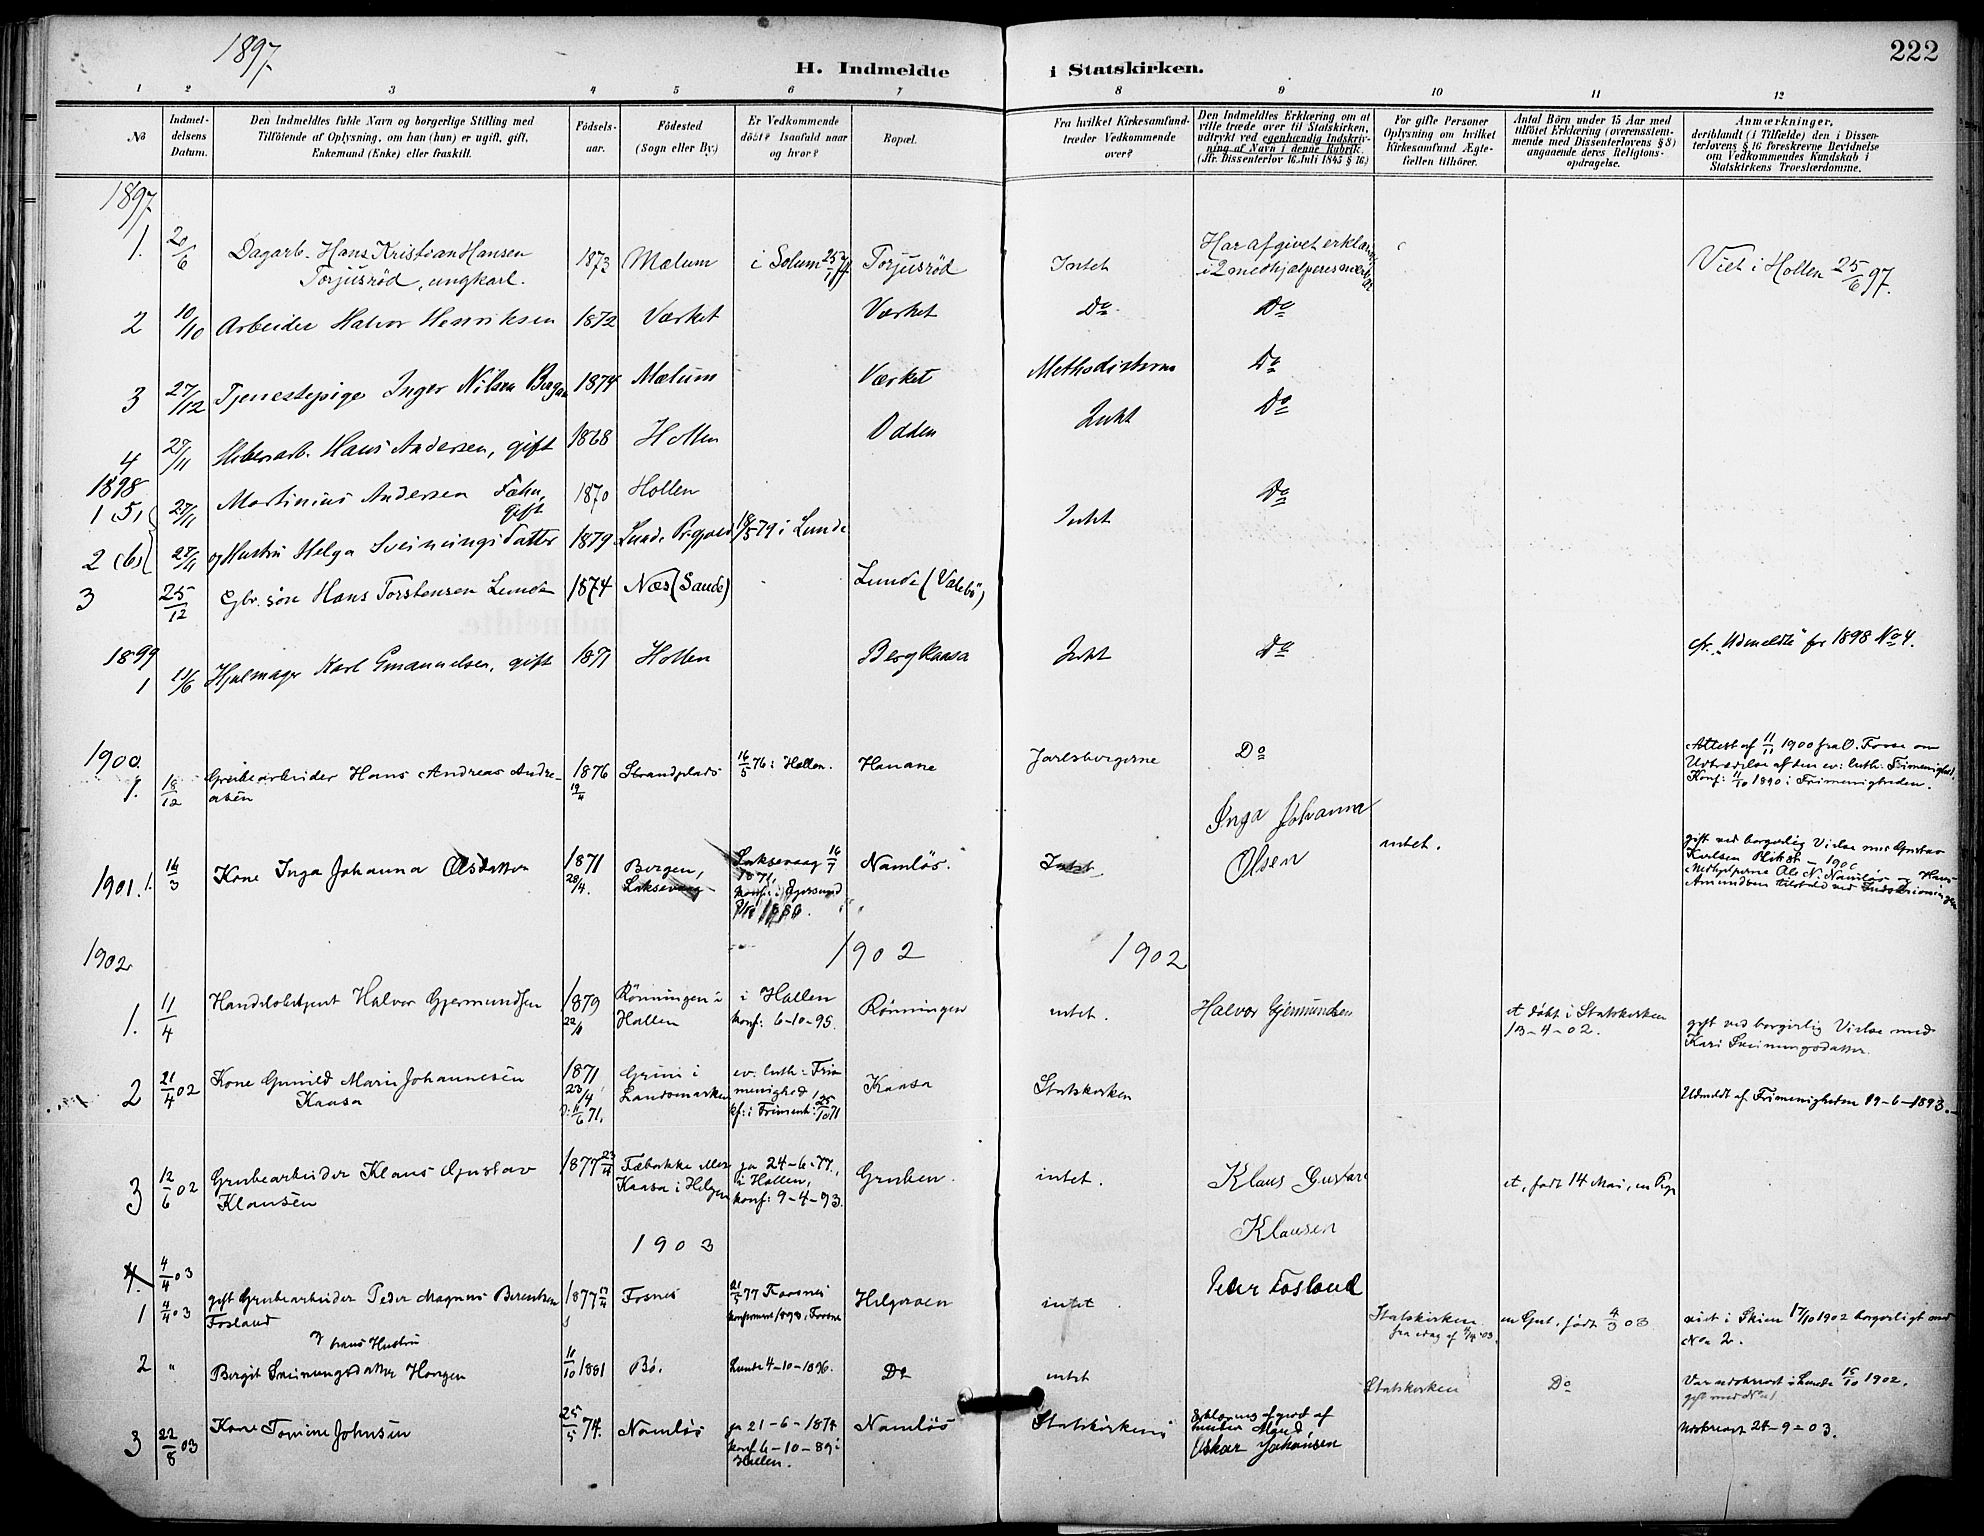 222
1897.
H. Indmeldte i Statskirken.
1 2 3 4 5 6 7 8 9 10 11 12
No
Indmel-
delsens
Datum.
Den Indmeldtes fulde Navn og borgerlige Stilling med
Tilföiende af Oplysning, om han (hun) er ugift, gift,
Enkemand (Enke) eller fraskilt.
Födsels-
aar.
Födested
(Sogn eller By.)
Er Vedkommende
döbt? Isaafald naar
og hvor?
Bopæl.
Fra hvilket Kirkesamfund
træder Vedkommende
over?
Den Indmeldtes Erklæring om at
ville træde over til Statskirken,
udtrykt ved egenhændig Indskriv-
ning af Navn i denne Rubrik.
(Jfr. Dissenterlov 16. Juli 1845 § 16.)
For gifte Personer
Oplysning om hvilket
Kirkesamfund Ægte-
fællen tilhörer.
Antal Börn under 15 Aar med
tilföiet Erklæring (overensstem-
mende med Dissenterlovens § 8)
angaaende deres Religions-
opdragelse.
Anmærkninger,
deriblandt (i Tilfælde) den i Dissen-
terlovens § 16 foreskrevne Bevidnelse
om Vedkommendes Kundskab i
Statskirkens Troeslærdomme.
1897.
1. 20/6 Dagarb. Hans Kristian Hansen 1873 Mælum i Solum 25/74 Torjusrød Intet Har afgivet erklæring
Torjusrød, ungkarl. i 2 medhjælperes nærvær Viet i Hollen 25/6 97.
2 10/10 Arbeider Halvor Henriksen 1872 Værket Værket Do Do
3 27/12 Tjenestepige Inger Nilsen Bergan 1874 Mælum Værket Methodisterne Do
4 27/11 Hans Andersen, gift 1868 Hollen Odden Intet Do
1898
1 (5) 27/11 Martinius Andersen 1870 Hollen Intet Do
gift
2 (6) 27/11 og Hustru Helga Sveinungsdatter 1879 Lunde Prgjæld 18/5 79 i Lunde
3 25/12 Gbr. søn Hans Torstensen Lunde 1874 Næs (Sande) Lunde (Valebö)
1899
1 11/6 Hjulmager Karl Emanuelsen, gift 1871 Hollen Bergkaasa Intet Do cfr. "Udmeldte" for 1898 No 4.
1900
1. 18/12 Grubearbeider Hans Andreas Andre- 1876 Strandplads 16/5 76 i Hollen. Hanane Jarlsbergerne Do
asen 19/4
Attest af 11/11 1900 fra O. Fosse om
Udtrædelse af den ev: luth: Frimenighed,
Konf: 11/10 1890 i Frimenigheden.
1901. 1. 16/3 Kone Inga Johanna Olsdatter 1871 28/4. Bergen,
Laksevaag
Laksevaag 16/7
1871,
konf: i Egersund
Namløs. Intet Inga Johanna
Olsen
intet.
gift ved borgerlig Vielse med Gustav
Karlsen
Medhjelperne Ole N. Namløs og Hans
Amundsen tilstede ved Indskrivningen
1902 1902 1902
1. 11/4 Handelsbetjent Halvor Gjermundsen 1879 22/ Rønningen i
Hollen
i Hollen
konf: 6-10-95.
Rønningen intet. Halvor Gjermundsen
et døbt i Statskirken
13-4-02.
gift ved borgerlig Vielse med
Kari Sveinungsdatter.
2 21/4 02 Kone Gunild Marie Johannesen
Kaasa
1871
23/4
Grini i
Landsmarken
ev: luth: Fri-
menighed
kf: i Frimenh: 25/10 71
Kaasa Statskirken
Udmeldt af Frimenigheden 19-6-1893.
3 12/6 02 Grubearbeider Klaus Gustav
Klausen
1877 23/4
Kaasa i Helgen
ja 24-6-77.
i Hollen,
konf: 9-4-93.
Gruben. intet. Klaus Gustav
Klausen
et, født 14 Mai, en Pige
1903
4. 4/4 03
1 4/4 03 gift Grubearbeider Peder Magnus Berentsen
Fosland
1877 17/4 Fosnes 21/5 77 Fosnes
konfirmeret 1893, Fosnes
Helgeroen intet Peder Fosland
Statskirken.
fra idag af 4/4 03.
en Gut, født 4/3 03
viet i Skien 17/10 1902 borgerligt med
No 2.
2 " og hans Hustru
Birgit Sveinungsdatter Haugen 11/10 1881 Bø. Lunde 4-10-1896. Do intet Statskirken Do
Var udskrevet i Lunde 15/10 1902.
gift med No 1
3 22/8 03 Kone Tomine Johnsen 25/5 74. Namløs ja 21-6-1874
konf 6-10-89 i
Hollen.
Namløs Statskirken
Erklæring afgivet af
hendes Mand
Oskar Johansen
Udskrevet 24-9-03.